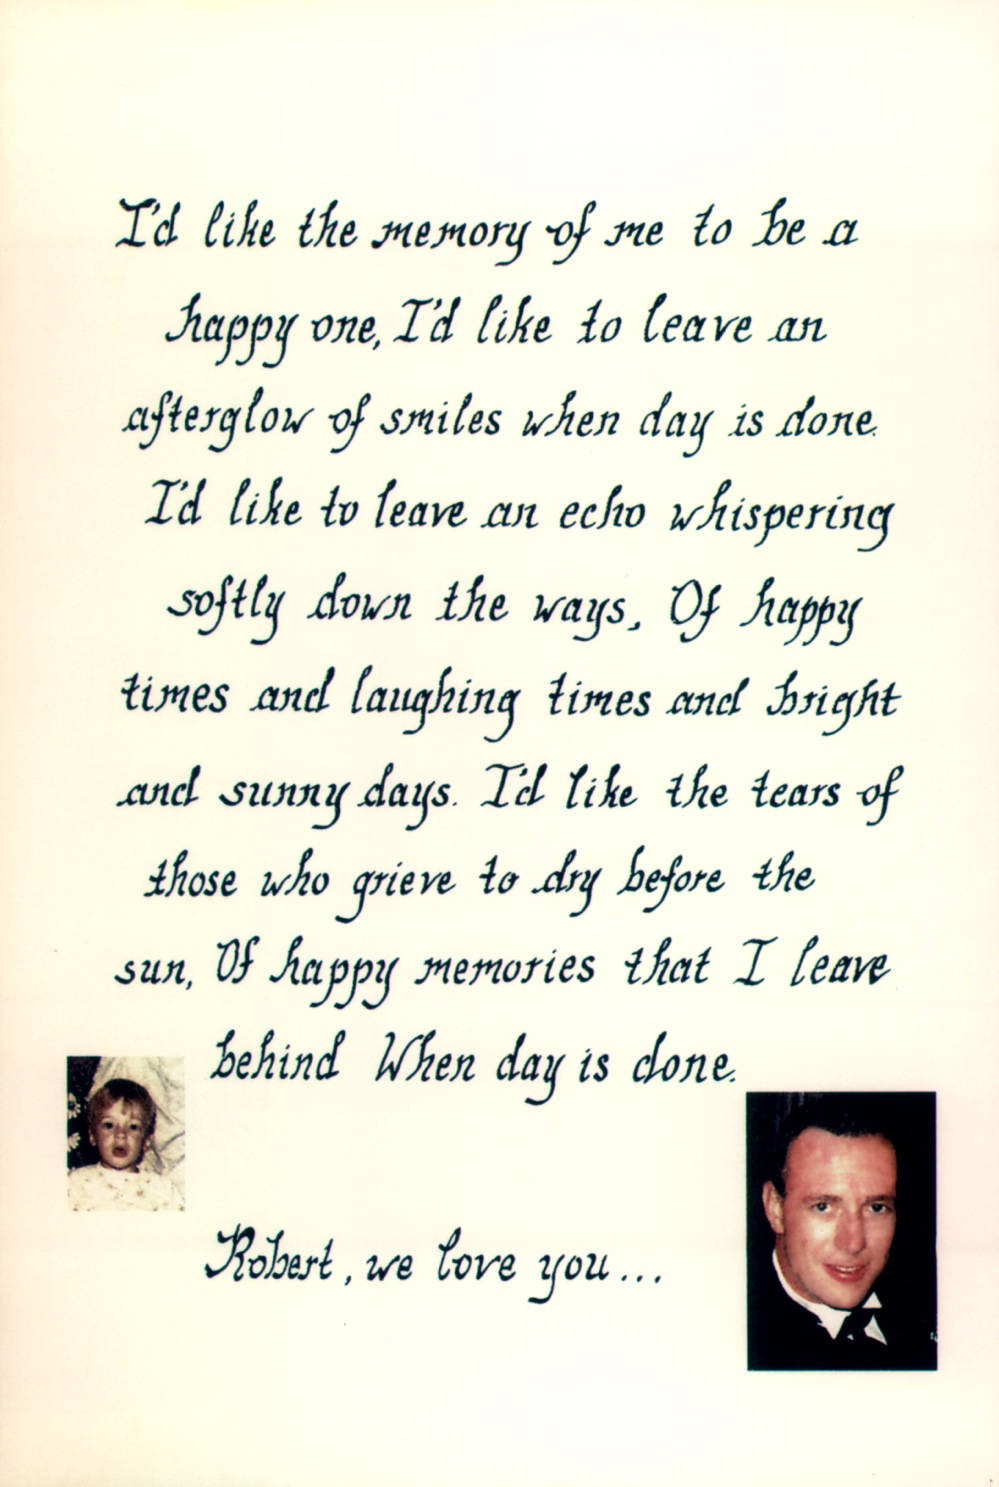 I'd like the memory of me to be a
happy one, I'd like to leave an
afterglow of smiles when day is done.
I'd like to leave an echo whispering
softly down the ways, Of happy
times and laughing times and bright
and sunny days. I'd like the tears of
those who grieve to dry before the
sun, Of happy memories that I leave
behind When day is done.
Robert, we love you...